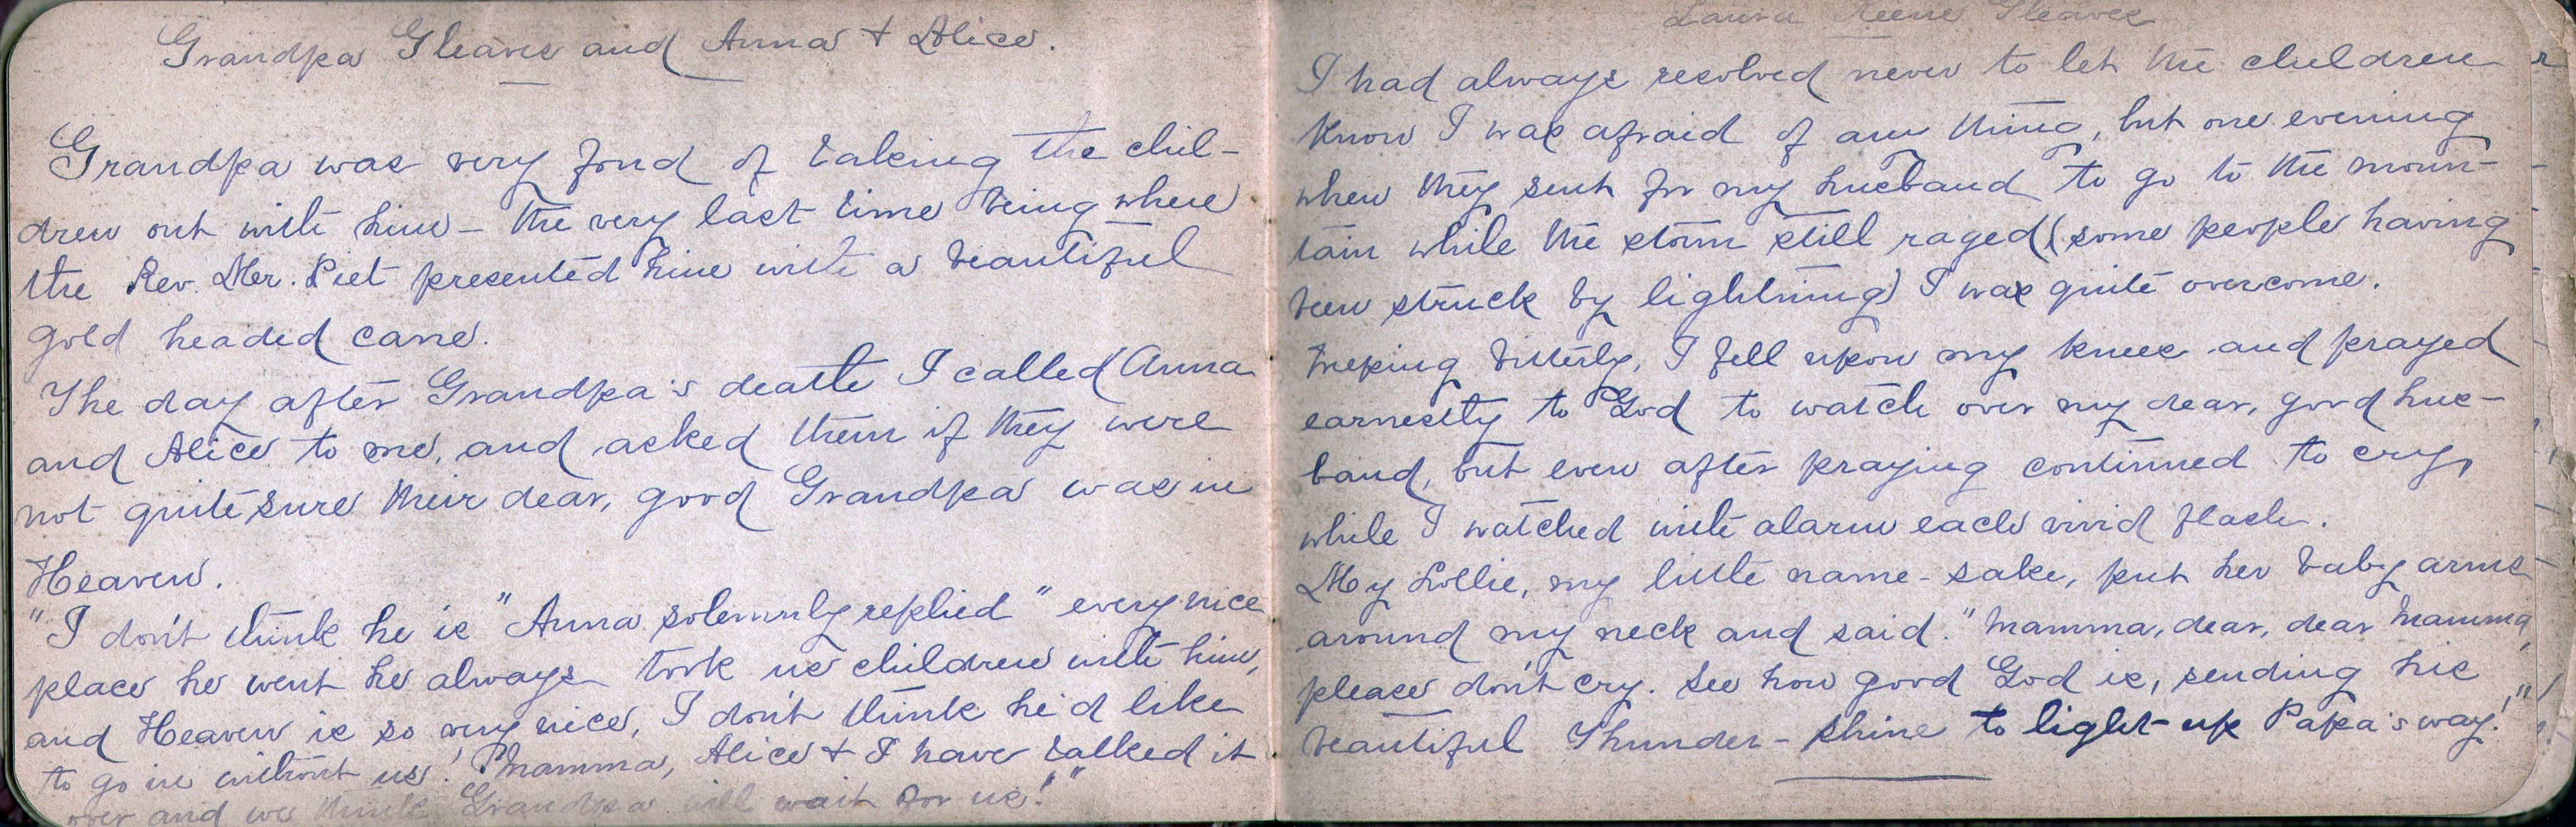 Grandpa Gleaves and Anna & Alice.
Grandpa was very fond of taking the chil-
dren out with him - the very last time being when
the Rev. Mr. Piet presented him with a beautiful
gold headed cane.
The day after Grandpa's death I called Anna
and Alice to me, and asked them if they were
not quite sure their dear, good Grandpa was in
Heaven.
"I don't think he is" Anna solemnly replied "every nice
place he went he always took us children with him,
and Heaven is so very nice, I don't think he'd like
to go in without us! Mamma, Alice & I have talked it
over and we think Grandpa will wait for us!"
Laura Keene Gleaves
I had always resolved never to let the children
know I was afraid of any thing, but one evening
when they sent for my husband to go to the moun-
tain while the storm still raged (some people having
been struck by lightning) I was quite overcome.
Weeping bitterly, I fell upon my knees and prayed
earnestly to God to watch over my dear, good hus-
band, but even after praying continued to cry,
while I watched with alarm each vivid flash.
My Lollie, my little name-sake, put her baby arms
around my neck and said. "Mamma, dear, dear Mamma
please don't cry. See how good God is, sending his
beautiful Thunder-shine to light up Papa's way!"